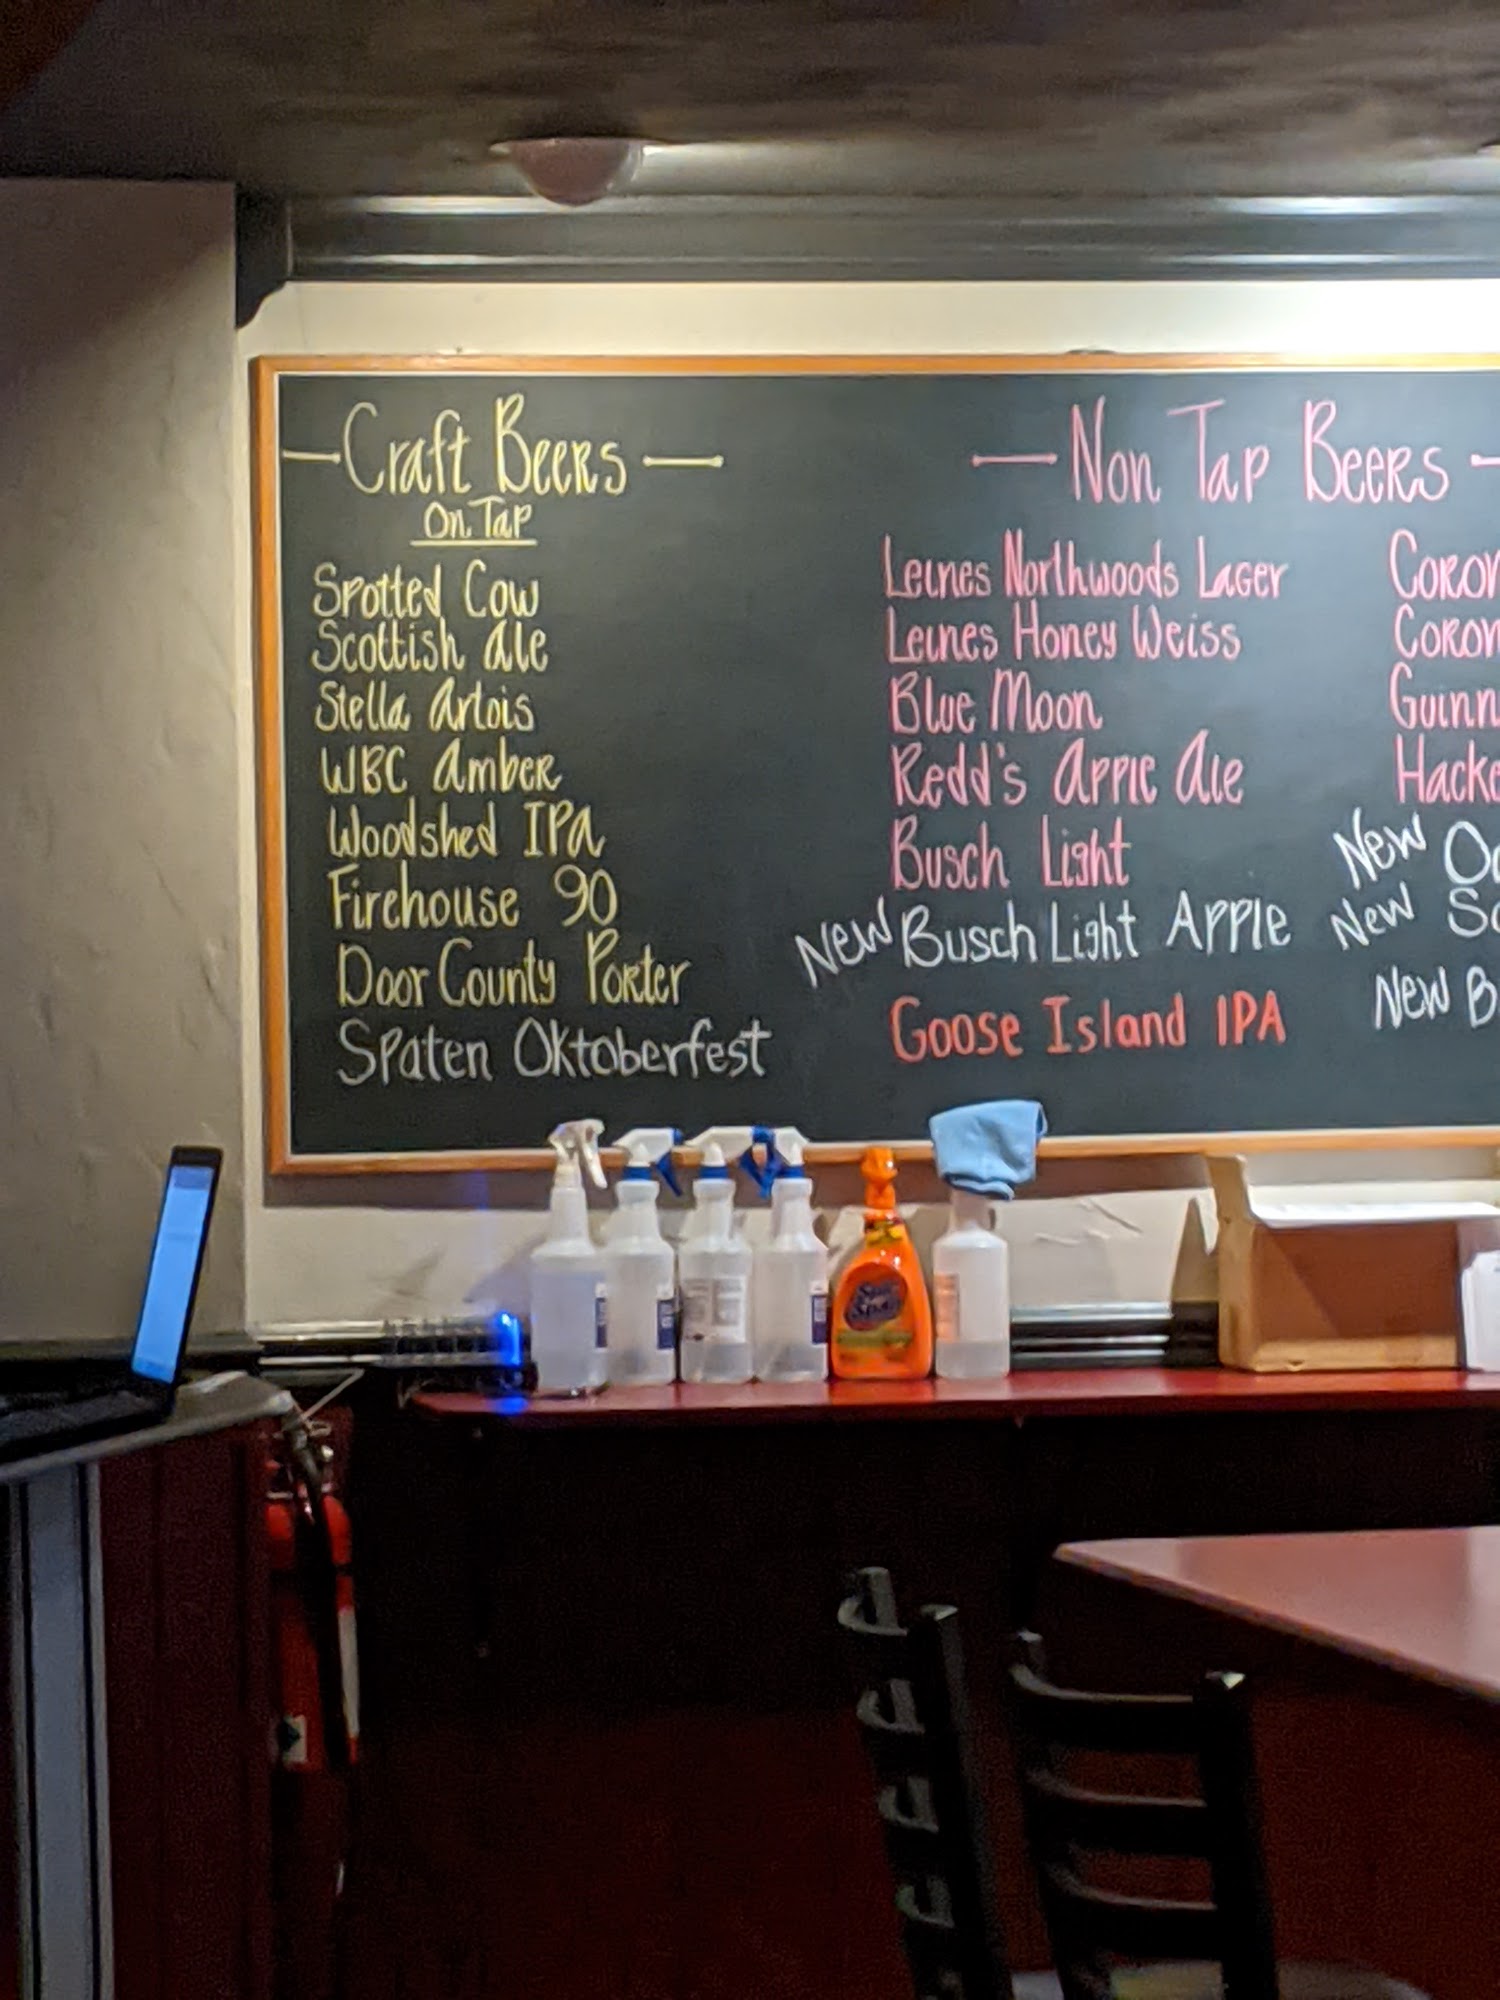 Craft Beers
On Tap
Spotted Cow
Scottish Ale
Stella Artois
WBC Amber
Woodshed IPA
Firehouse 90
Door County Porter
Spaten Oktoberfest
Non Tap Beers
Leines Northwoods Lager
Leines Honey Weiss
Blue Moon
Redd's Apple Ale
Busch Light
New Busch Light Apple
Goose Island IPA
Coron
Coron
Guinn
Hacke
New Oc
New Sc
New B
Spic
Span